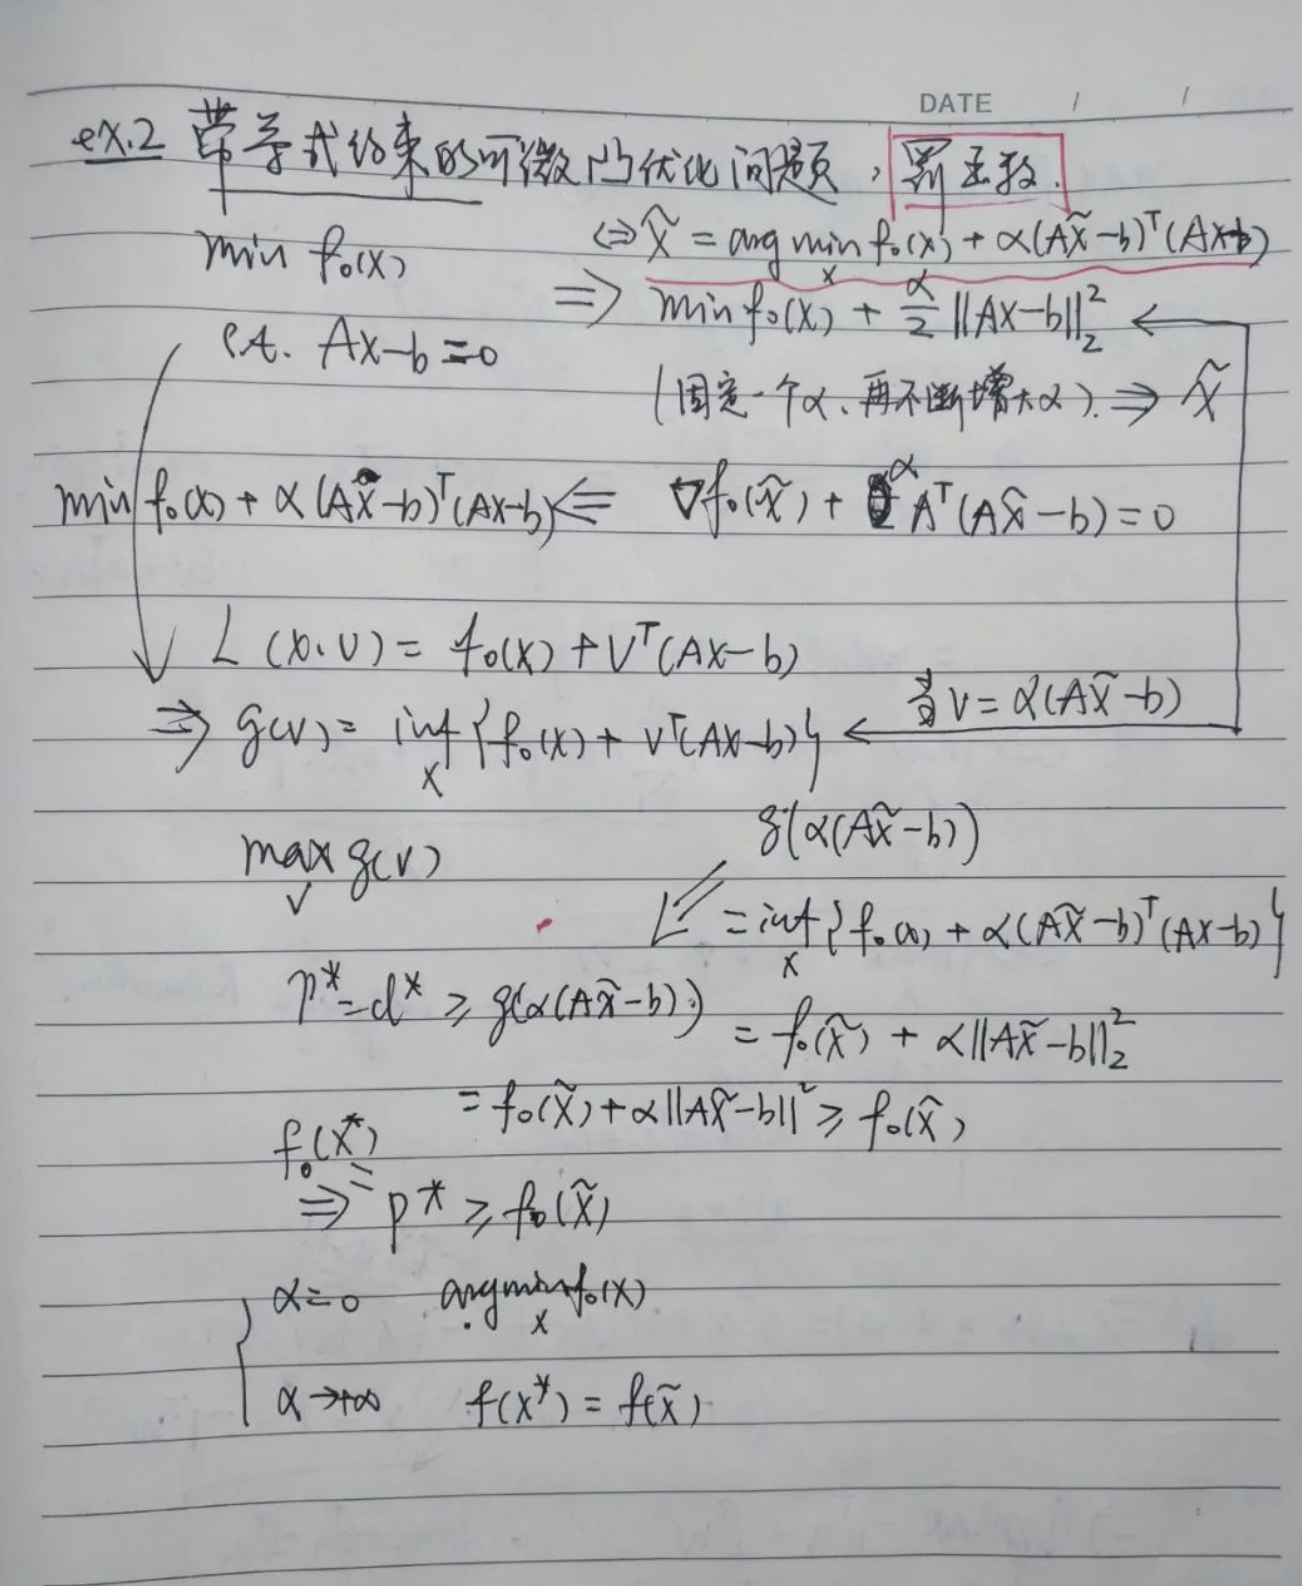 DATE / /
ex.2 带等式约束的可微凸优化问题，罚函数.
min f₀(x) ⇔ x̃ = arg min_x f₀(x) + α(Ax̃-b)ᵀ(Ax-b)
⇒ min f₀(x) + α/2 ||Ax-b||₂² ←
s.t. Ax-b=0
(固定一个α、再不断增大α). ⇒ x̃
min f₀(x) + α(Ax̃-b)ᵀ(Ax-b) ⇐ ∇f₀(x̃) + α Aᵀ(Ax̃-b)=0
L(x,v) = f₀(x) + vᵀ(Ax-b)
⇒ g(v) = inf_x {f₀(x) + vᵀ(Ax-b)} ← 当 v=α(Ax̃-b)
g(α(Ax̃-b))
max_v g(v)
= inf_x {f₀(x) + α(Ax̃-b)ᵀ(Ax-b)}
p*=d* ≥ g(α(Ax̃-b)) = f₀(x̃) + α||Ax̃-b||₂²
= f₀(x̃)+α||Ax̃-b||² ≥ f₀(x̃)
f₀(x*)
=
⇒ p* ≥ f₀(x̃)
{ α=0 argmin_x f₀(x)
α→+∞ f(x*) = f(x̃)